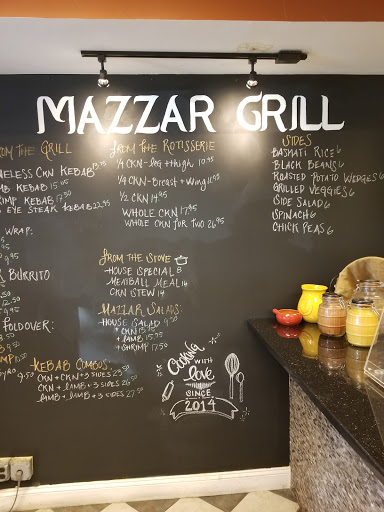 MAZZAR GRILL
OM THE GRILL
NELESS CKN KEBAB
MB KEBAB
IMP KEBAB 17.50
EYE STEAK KEBAB 22.95
WRAP:
BURRITO
FOLDOVER:
KEBAB COMBOS
CKN + CKN + 3 SIDES 23.50
CKN + LAMB + 3 SIDES 26.50
LAMB + LAMB + 3 SIDES 27.50
FROM THE ROTISSERIE
1/4 CKN-leg + thigh 10.95
1/4 CKN-Breast + Wing 11.95
1/2 CKN 14.95
WHOLE CKN 17.95
WHOLE CKN FOR TWO 26.95
FROM THE STOVE
HOUSE SPECIAL 8
MEATBALL MEAL 14
CKN STEW 14
MAZZAR SALADS:
HOUSE SALAD 9.50
+ CKN
+ LAMB 15.50
+ SHRIMP 17.50
COOKING
WITH
love
SINCE
2014
SIDES
BASMATI RICE 6
BLACK BEANS 6
ROASTED POTATO WEDGES 6
GRILLED VEGGIES 6
SIDE SALAD 6
SPINACH 6
CHICK PEAS 6